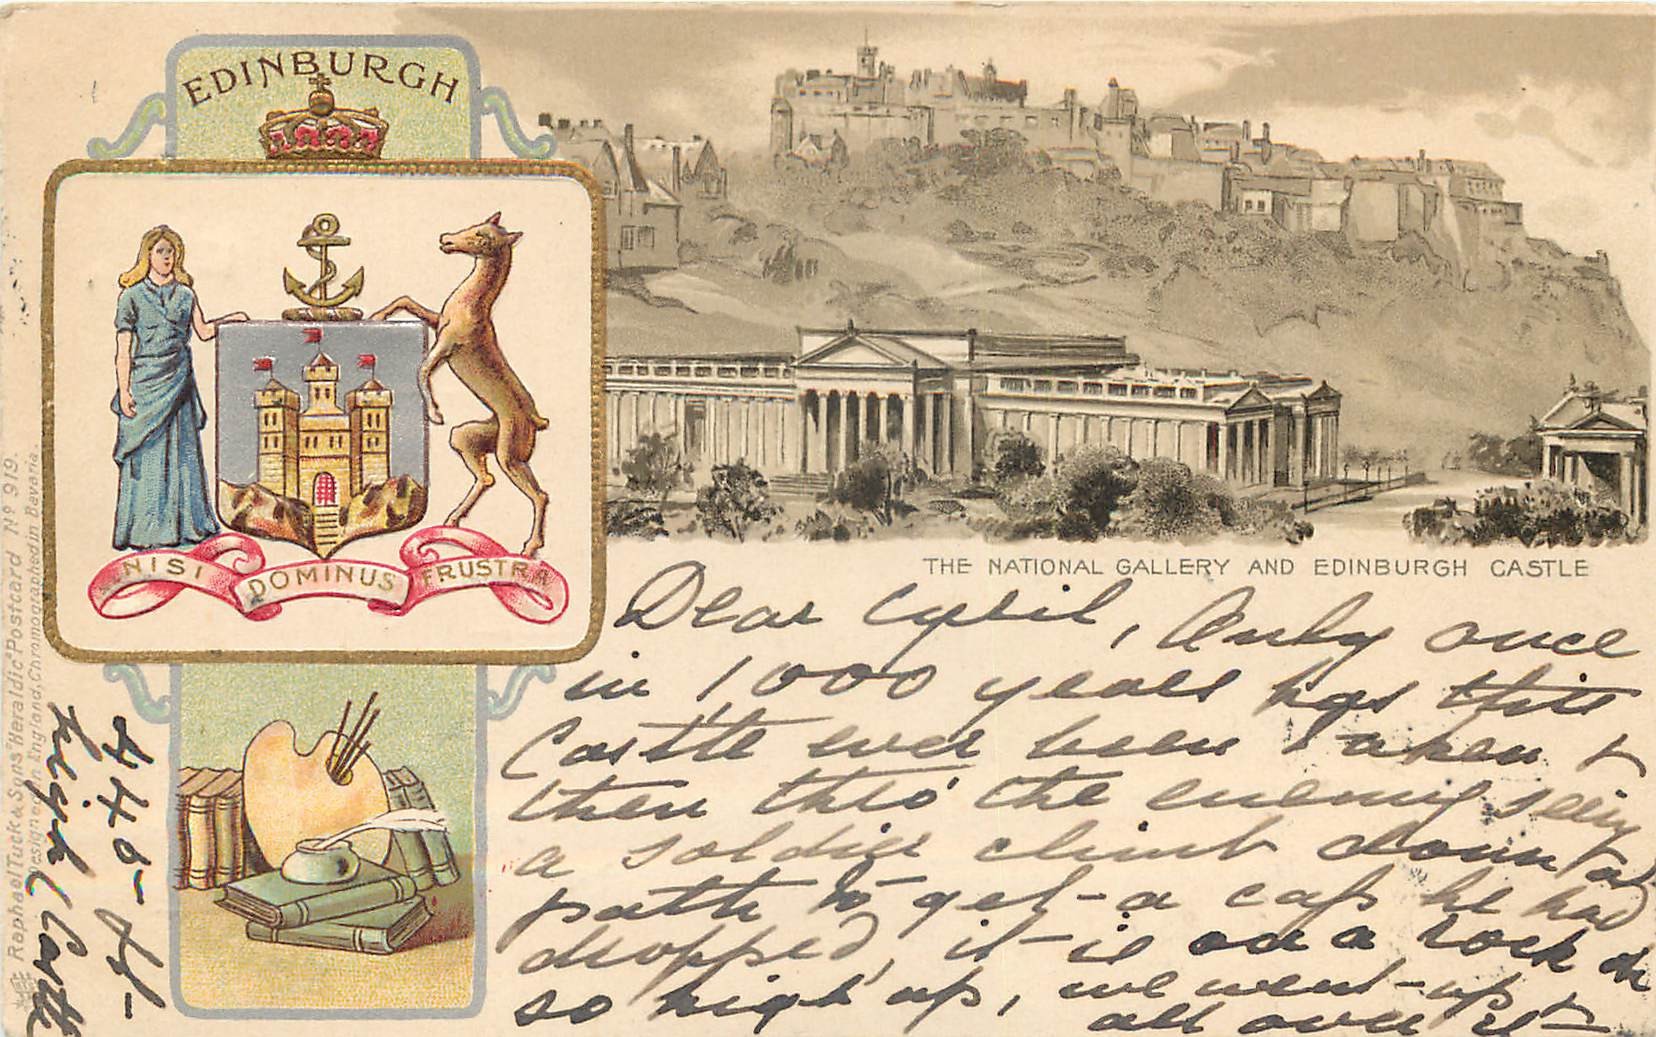 EDINBURGH
NISI DOMINUS FRUSTRA
THE NATIONAL GALLERY AND EDINBURGH CASTLE
Dear Cyril, Only once
in 1000 years has this
Castle ever been taken &
then thro' the enemy seeing
a soldier climb down a
path to get a cap he had
dropped, it is on a rock &
so high up, we went up &
all over it
440 ft
high Castle
Raphael Tuck & Sons "Heraldic" Postcard Nº 919.
Designed in England, Chromographed in Bavaria.